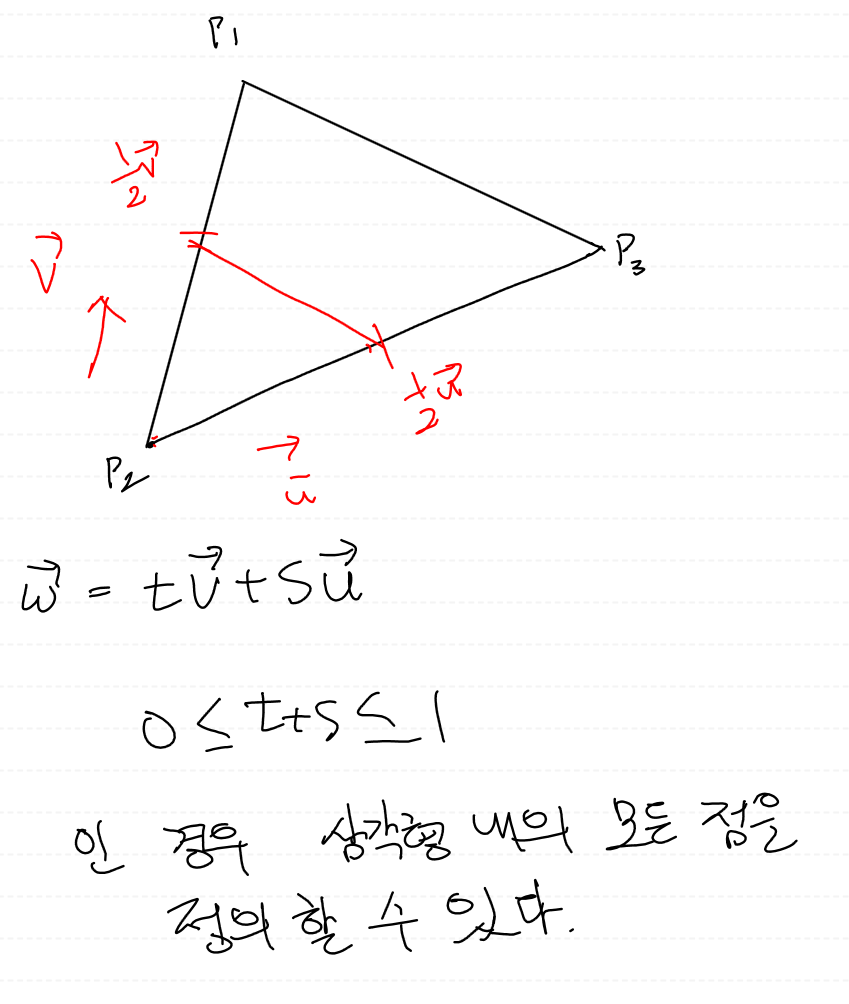 P1
1/2 v⃗
v⃗
P3
1/2 u⃗
P2
u
w⃗ = tv⃗ + su⃗
0 ≤ t+s ≤ 1
인 경우 삼각형 내의 모든 점을
정의 할 수 있다.